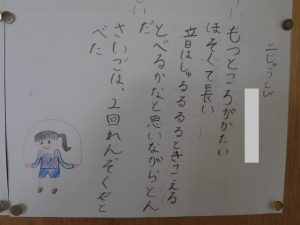 二じゅうとび
もつところがかたい
ほそくて長い
音はしゅるるるるときこえる
とべるかなと思いながらとん
だ
さいごは、2回れんぞくだと
べた